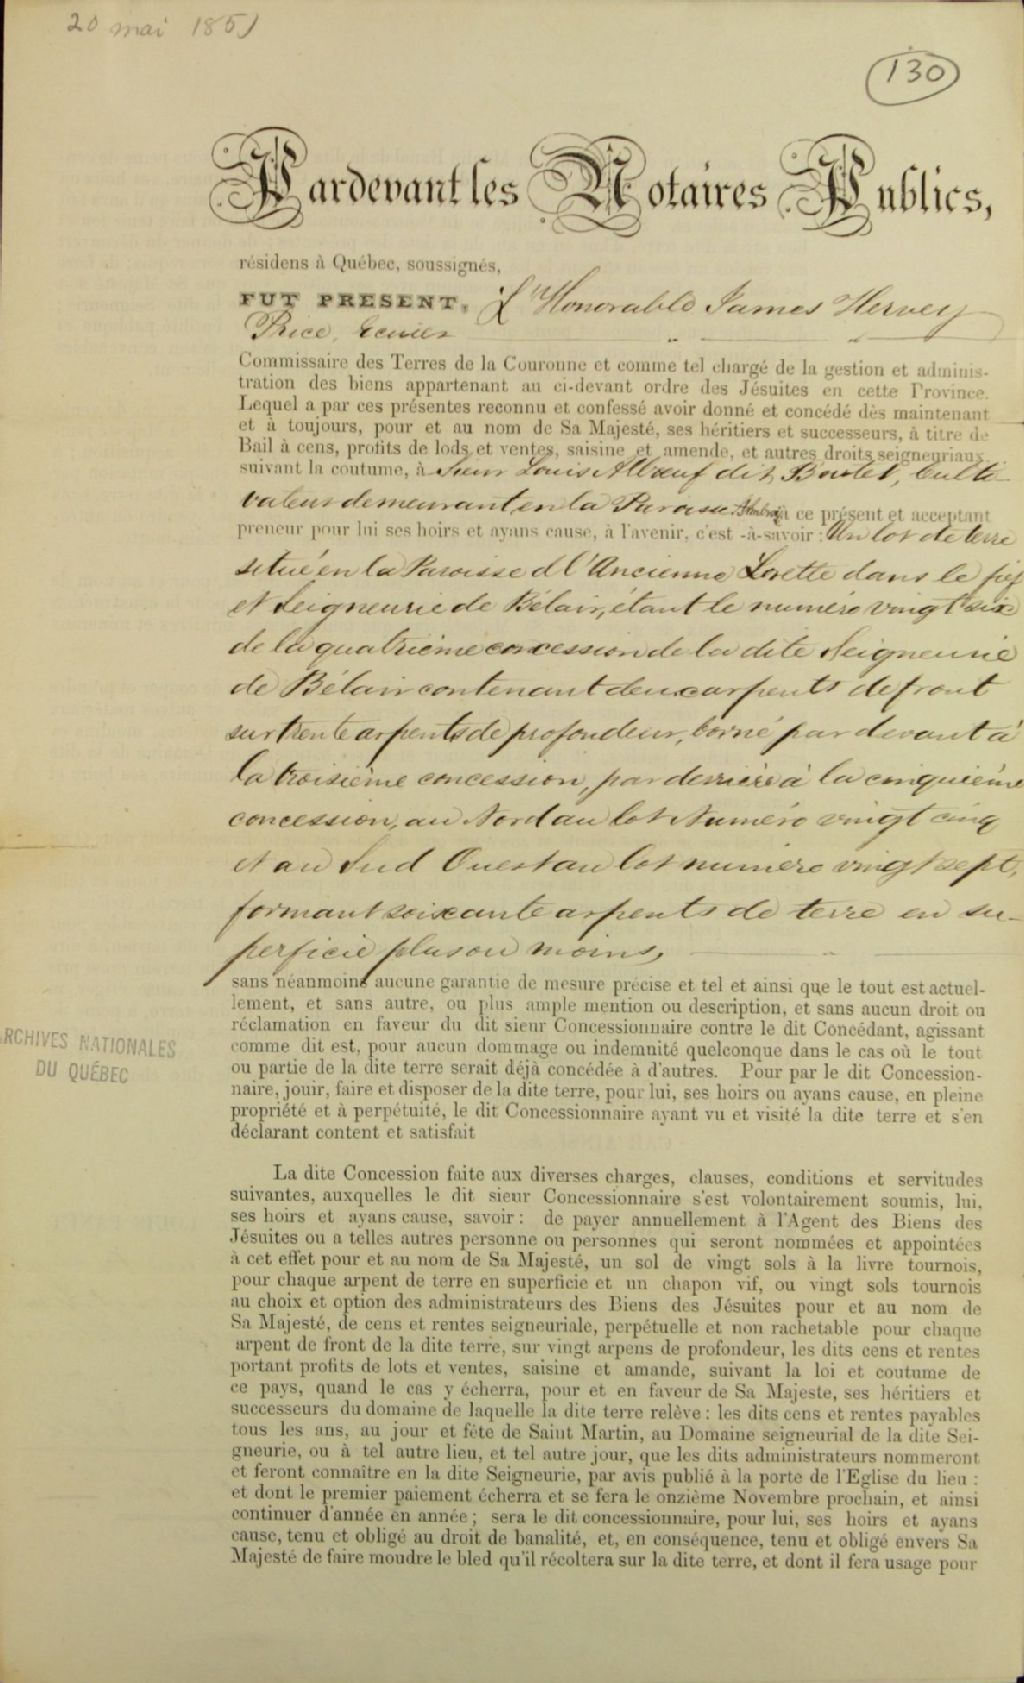 20 mai 1851
130
Pardevant les Notaires Publics,
résidens à Québec, soussignés,
FUT PRESENT, L'Honorable James Hervey
Price, Ecuier
Commissaire des Terres de la Couronne et comme tel chargé de la gestion et adminis-
tration des biens appartenant au ci-devant ordre des Jésuites en cette Province.
Lequel a par ces présentes reconnu et confessé avoir donné et concédé dès maintenant
et à toujours, pour et au nom de Sa Majesté, ses héritiers et successeurs, à titre de
Bail à cens, profits de lods et ventes, saisine et amende, et autres droits seigneuriaux,
suivant la coutume, à Sieur Louis Alboeuf dit Boutet, Culti-
vateur demeurant en la Paroisse St Ambroise à ce présent et acceptant
preneur pour lui ses hoirs et ayans cause, à l'avenir, c'est -à-savoir : Un lot de terre
situé en la Paroisse d l'Ancienne Lorette dans le fief
et Seigneurie de Bélair, étant le numéro vingt six
de la quatrième concession de la dite Seigneurie
de Bélair contenant deux arpents de front
sur trente arpents de profondeur, borné par devant à
la troisième concession, par derrière à la cinquième
concession, au Nord au lot Numéro vingt cinq
et au Sud Ouest au lot numéro vingt sept,
formant soixante arpents de terre en su-
perficie plus ou moins,
sans néanmoins aucune garantie de mesure précise et tel et ainsi que le tout est actuel-
lement, et sans autre, ou plus ample mention ou description, et sans aucun droit ou
réclamation en faveur du dit sieur Concessionnaire contre le dit Concédant, agissant
comme dit est, pour aucun dommage ou indemnité quelconque dans le cas où le tout
ou partie de la dite terre serait déjà concédée à d'autres. Pour par le dit Concession-
naire, jouir, faire et disposer de la dite terre, pour lui, ses hoirs ou ayans cause, en pleine
propriété et à perpétuité, le dit Concessionnaire ayant vu et visité la dite terre et s'en
déclarant content et satisfait
ARCHIVES NATIONALES
DU QUÉBEC
La dite Concession faite aux diverses charges, clauses, conditions et servitudes
suivantes, auxquelles le dit sieur Concessionnaire s'est volontairement soumis, lui,
ses hoirs et ayans cause, savoir : de payer annuellement à l'Agent des Biens des
Jésuites ou a telles autres personne ou personnes qui seront nommées et appointées
à cet effet pour et au nom de Sa Majesté, un sol de vingt sols à la livre tournois,
pour chaque arpent de terre en superficie et un chapon vif, ou vingt sols tournois
au choix et option des administrateurs des Biens des Jésuites pour et au nom de
Sa Majesté, de cens et rentes seigneuriale, perpétuelle et non rachetable pour chaque
arpent de front de la dite terre, sur vingt arpens de profondeur, les dits cens et rentes
portant profits de lots et ventes, saisine et amande, suivant la loi et coutume de
ce pays, quand le cas y écherra, pour et en faveur de Sa Majeste, ses héritiers et
successeurs du domaine de laquelle la dite terre relève : les dits cens et rentes payables
tous les ans, au jour et fête de Saint Martin, au Domaine seigneurial de la dite Sei-
gneurie, ou à tel autre lieu, et tel autre jour, que les dits administrateurs nommeront
et feront connaître en la dite Seigneurie, par avis publié à la porte de l'Eglise du lieu :
et dont le premier paiement écherra et se fera le onzième Novembre prochain, et ainsi
continuer d'année en année ; sera le dit concessionnaire, pour lui, ses hoirs et ayans
cause, tenu et obligé au droit de banalité, et, en conséquence, tenu et obligé envers Sa
Majesté de faire moudre le bled qu'il récoltera sur la dite terre, et dont il fera usage pour